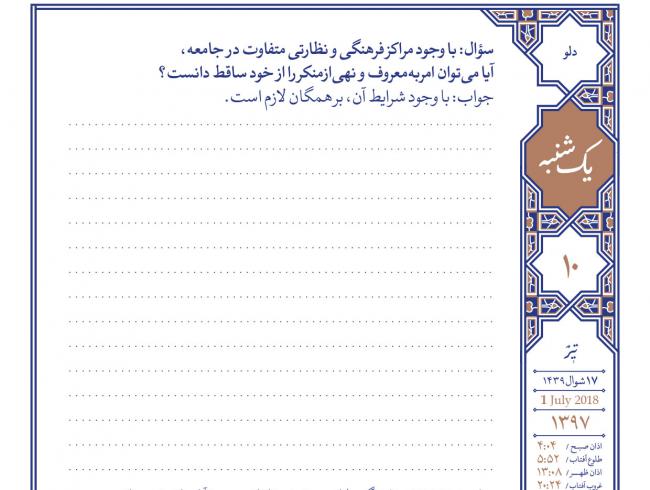 سؤال: با وجود مراکز فرهنگی و نظارتی متفاوت در جامعه،
آیا می‌توان امر به معروف و نهی از منکر را از خود ساقط دانست؟
جواب: با وجود شرایط آن، بر همگان لازم است.
دلو
یک‌شنبه
۱۰
تیر
۱۷ شوال ۱۴۳۹
1 July 2018
۱۳۹۷
اذان صبح / ۴:۰۴
طلوع آفتاب / ۵:۵۲
اذان ظهر / ۱۳:۰۸
غروب آفتاب / ۲۰:۲۴